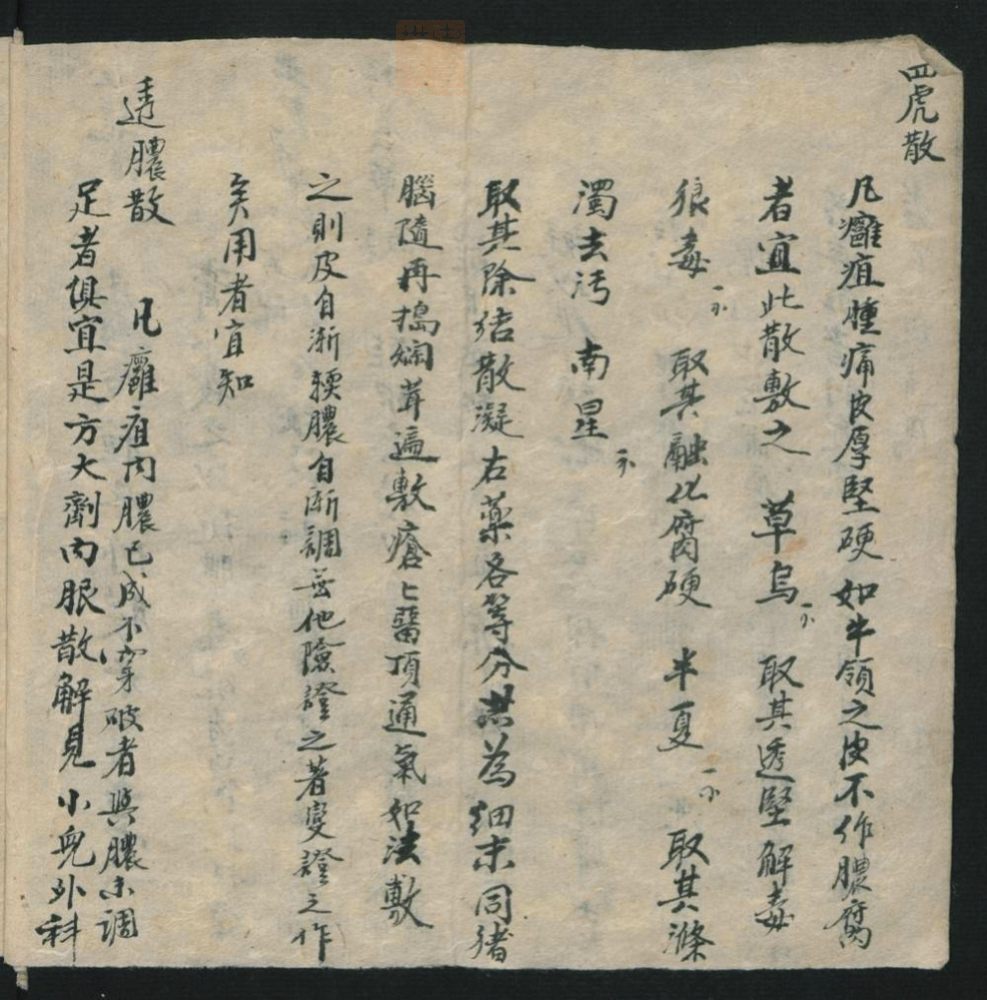 四虎散
凡癰疽腫痛皮厚堅硬如牛領之皮不作膿腐
者宜此散敷之 草烏 取其透堅解毒
狼毒 取其融化腐硬 半夏 取其滌
濁去污 南星
取其除结散凝右藥各等分共為细末同猪
腦隨再搗爛葺遍敷瘡〻留頂通氣如法敷
之則皮自漸輭膿自漸調無他險證之著變證之作
矣用者宜知
透膿散 凡癰疽内膿已成不穿破者與膿未調
足者俱宜是方大劑内服散解見小兒外科